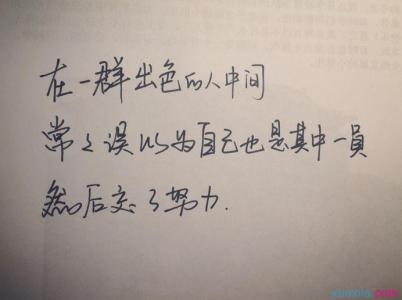 在一群出色的人中间
常々误以为自己也是其中一員
然后弃了努力.